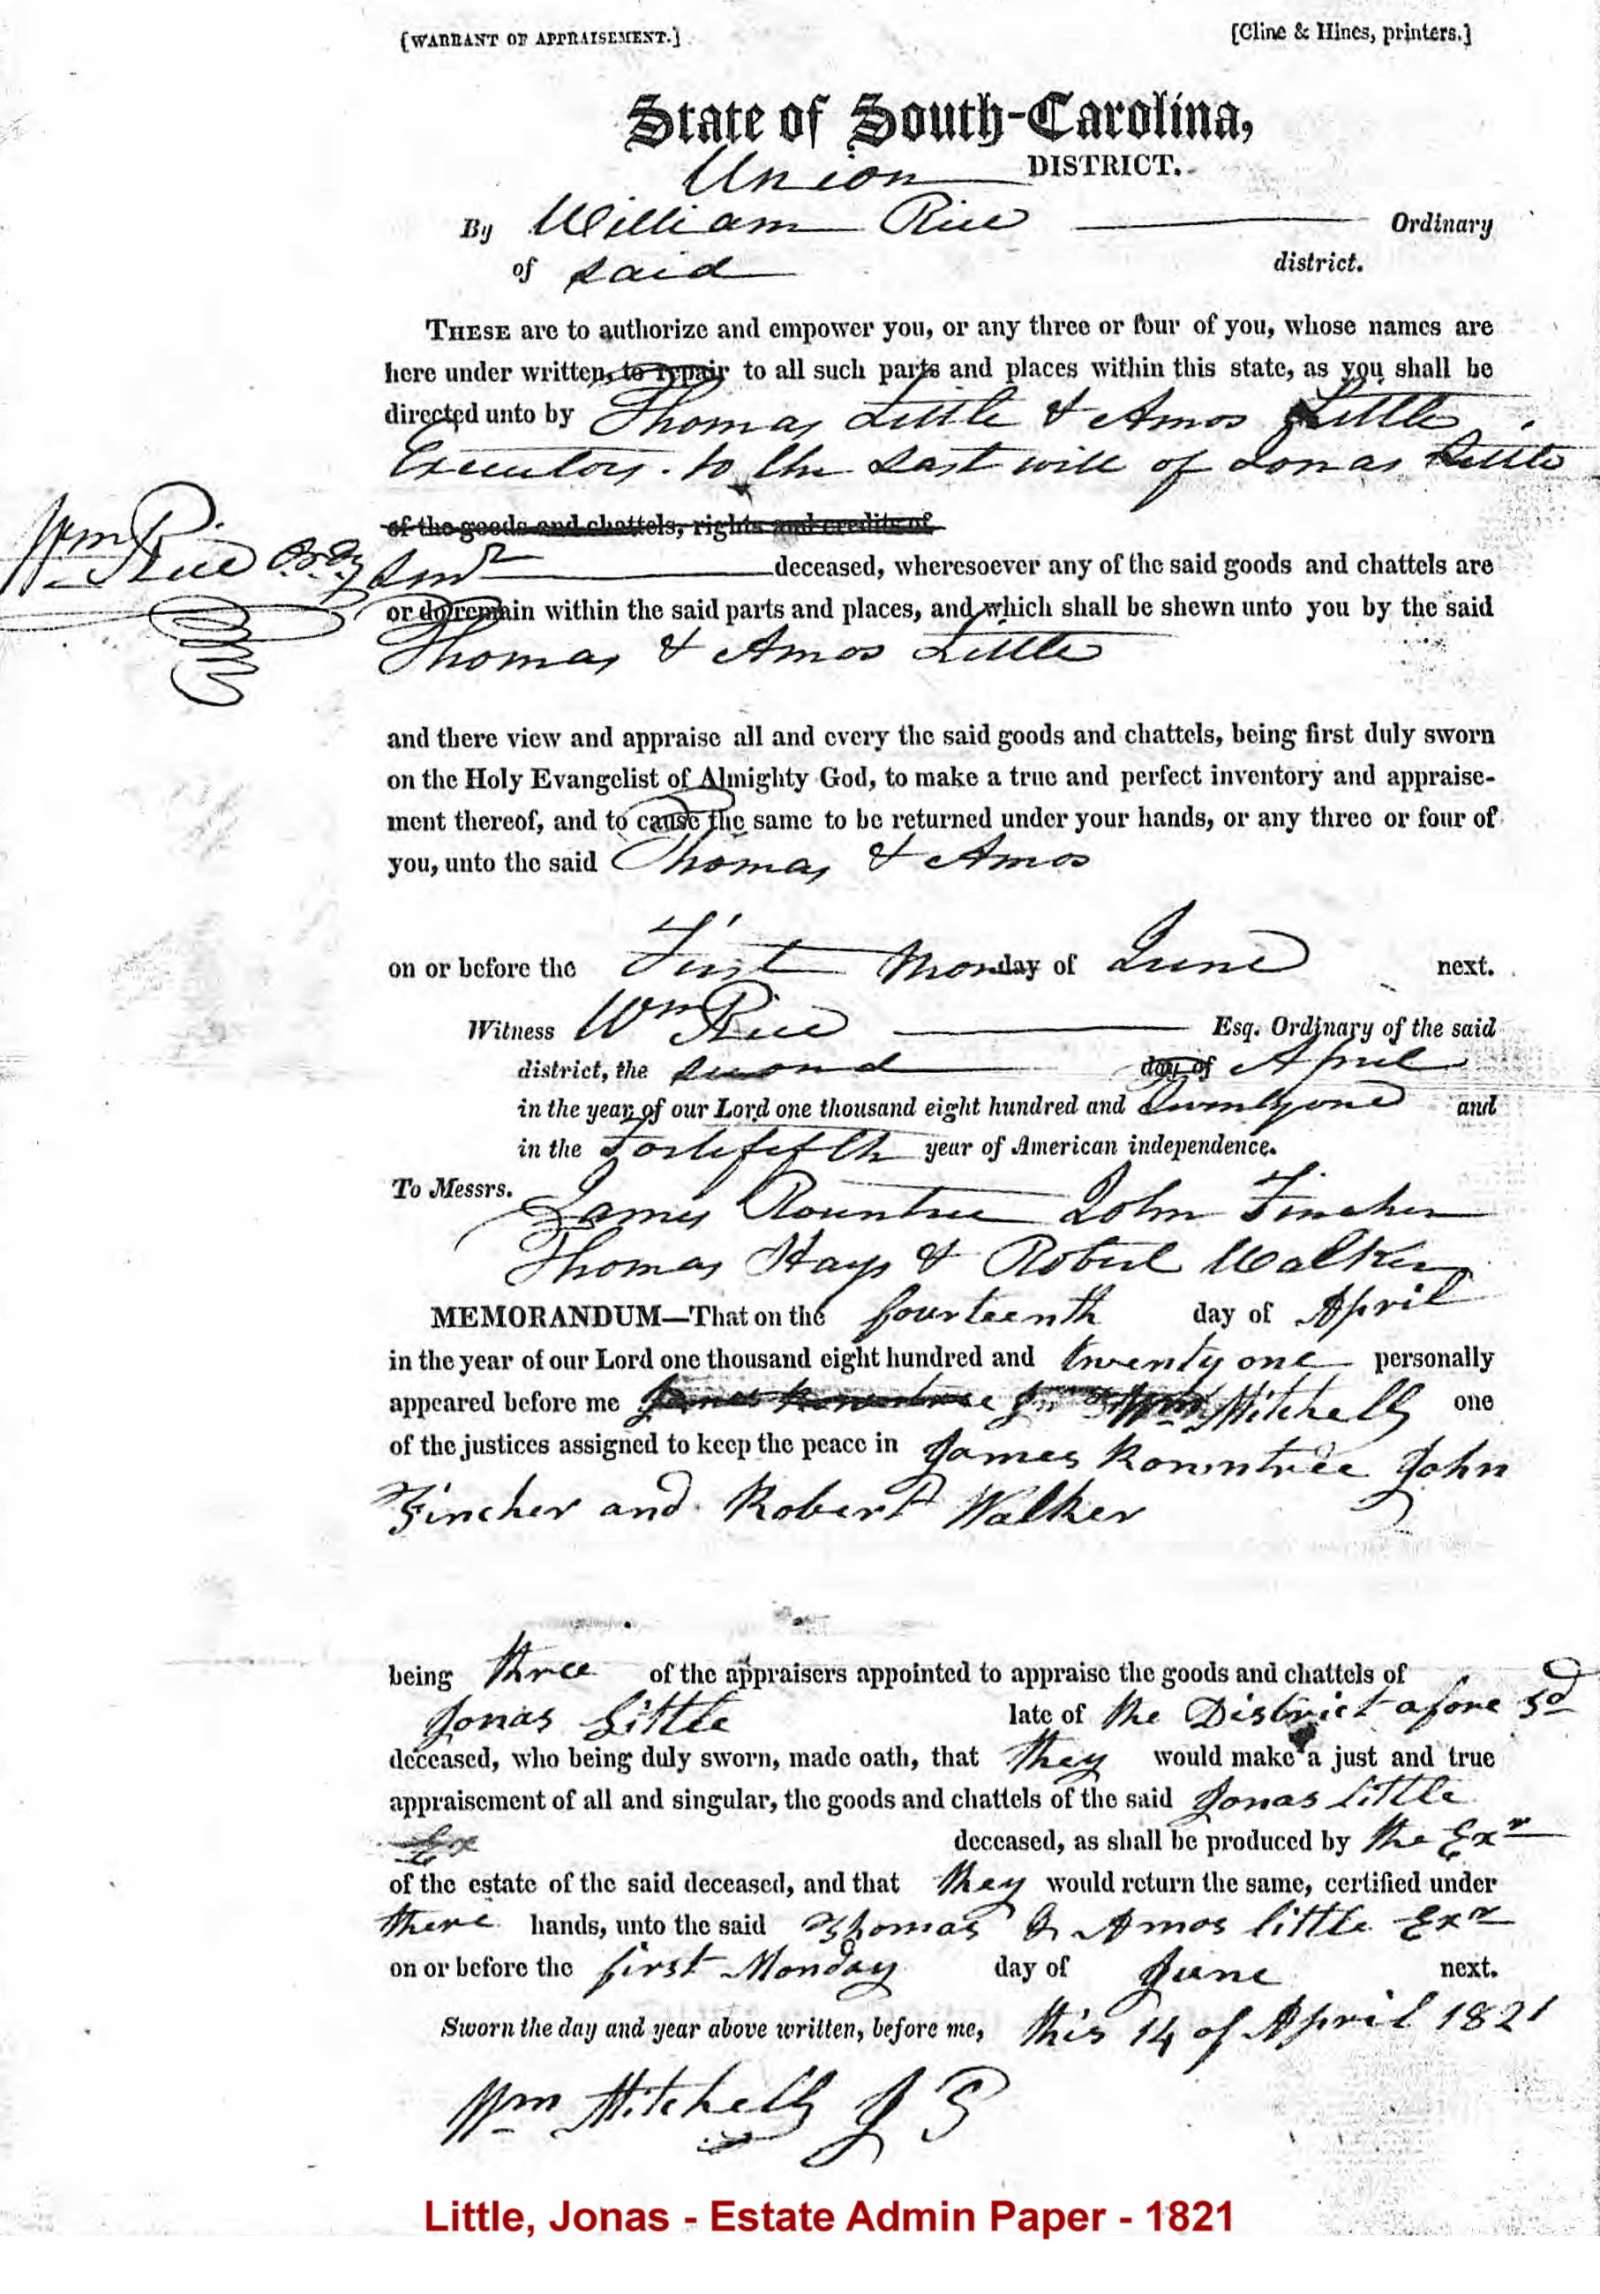 [WARRANT OF APPRAISEMENT.] [Cline & Hines, printers.]
State of South-Carolina,
Union DISTRICT.
By William Rice Ordinary
of said district.
THESE are to authorize and empower you, or any three or four of you, whose names are
here under written, to repair to all such parts and places within this state, as you shall be
directed unto by Thomas Little & Amos Little
Executors to the Last will of Jonas Little
of the goods and chattels, rights and credits of
Wm Rice Ordy
deceased, wheresoever any of the said goods and chattels are
or do remain within the said parts and places, and which shall be shewn unto you by the said
Thomas & Amos Little
and there view and appraise all and every the said goods and chattels, being first duly sworn
on the Holy Evangelist of Almighty God, to make a true and perfect inventory and appraise-
ment thereof, and to cause the same to be returned under your hands, or any three or four of
you, unto the said Thomas & Amos
on or before the First Monday of June next.
Witness Wm Rice Esq. Ordinary of the said
district, the second day of April
in the year of our Lord one thousand eight hundred and Twenty one and
in the Fortififth year of American independence.
To Messrs.
James Rountree John Fincher
Thomas Hays & Robert Walker
MEMORANDUM—That on the fourteenth day of April
in the year of our Lord one thousand eight hundred and twenty one personally
appeared before me James Rowntree Jn Wm Mitchell one
of the justices assigned to keep the peace in James Rowntree John
Fincher and Robert Walker
being three of the appraisers appointed to appraise the goods and chattels of
Jonas Little late of the District afore sd
deceased, who being duly sworn, made oath, that they would make a just and true
appraisement of all and singular, the goods and chattels of the said Jonas Little
Ex deceased, as shall be produced by the Exr
of the estate of the said deceased, and that they would return the same, certified under
there hands, unto the said Thomas & Amos little Exr
on or before the first Monday day of June next.
Sworn the day and year above written, before me, this 14 of April 1821
Wm Mitchell J P
Little, Jonas - Estate Admin Paper - 1821